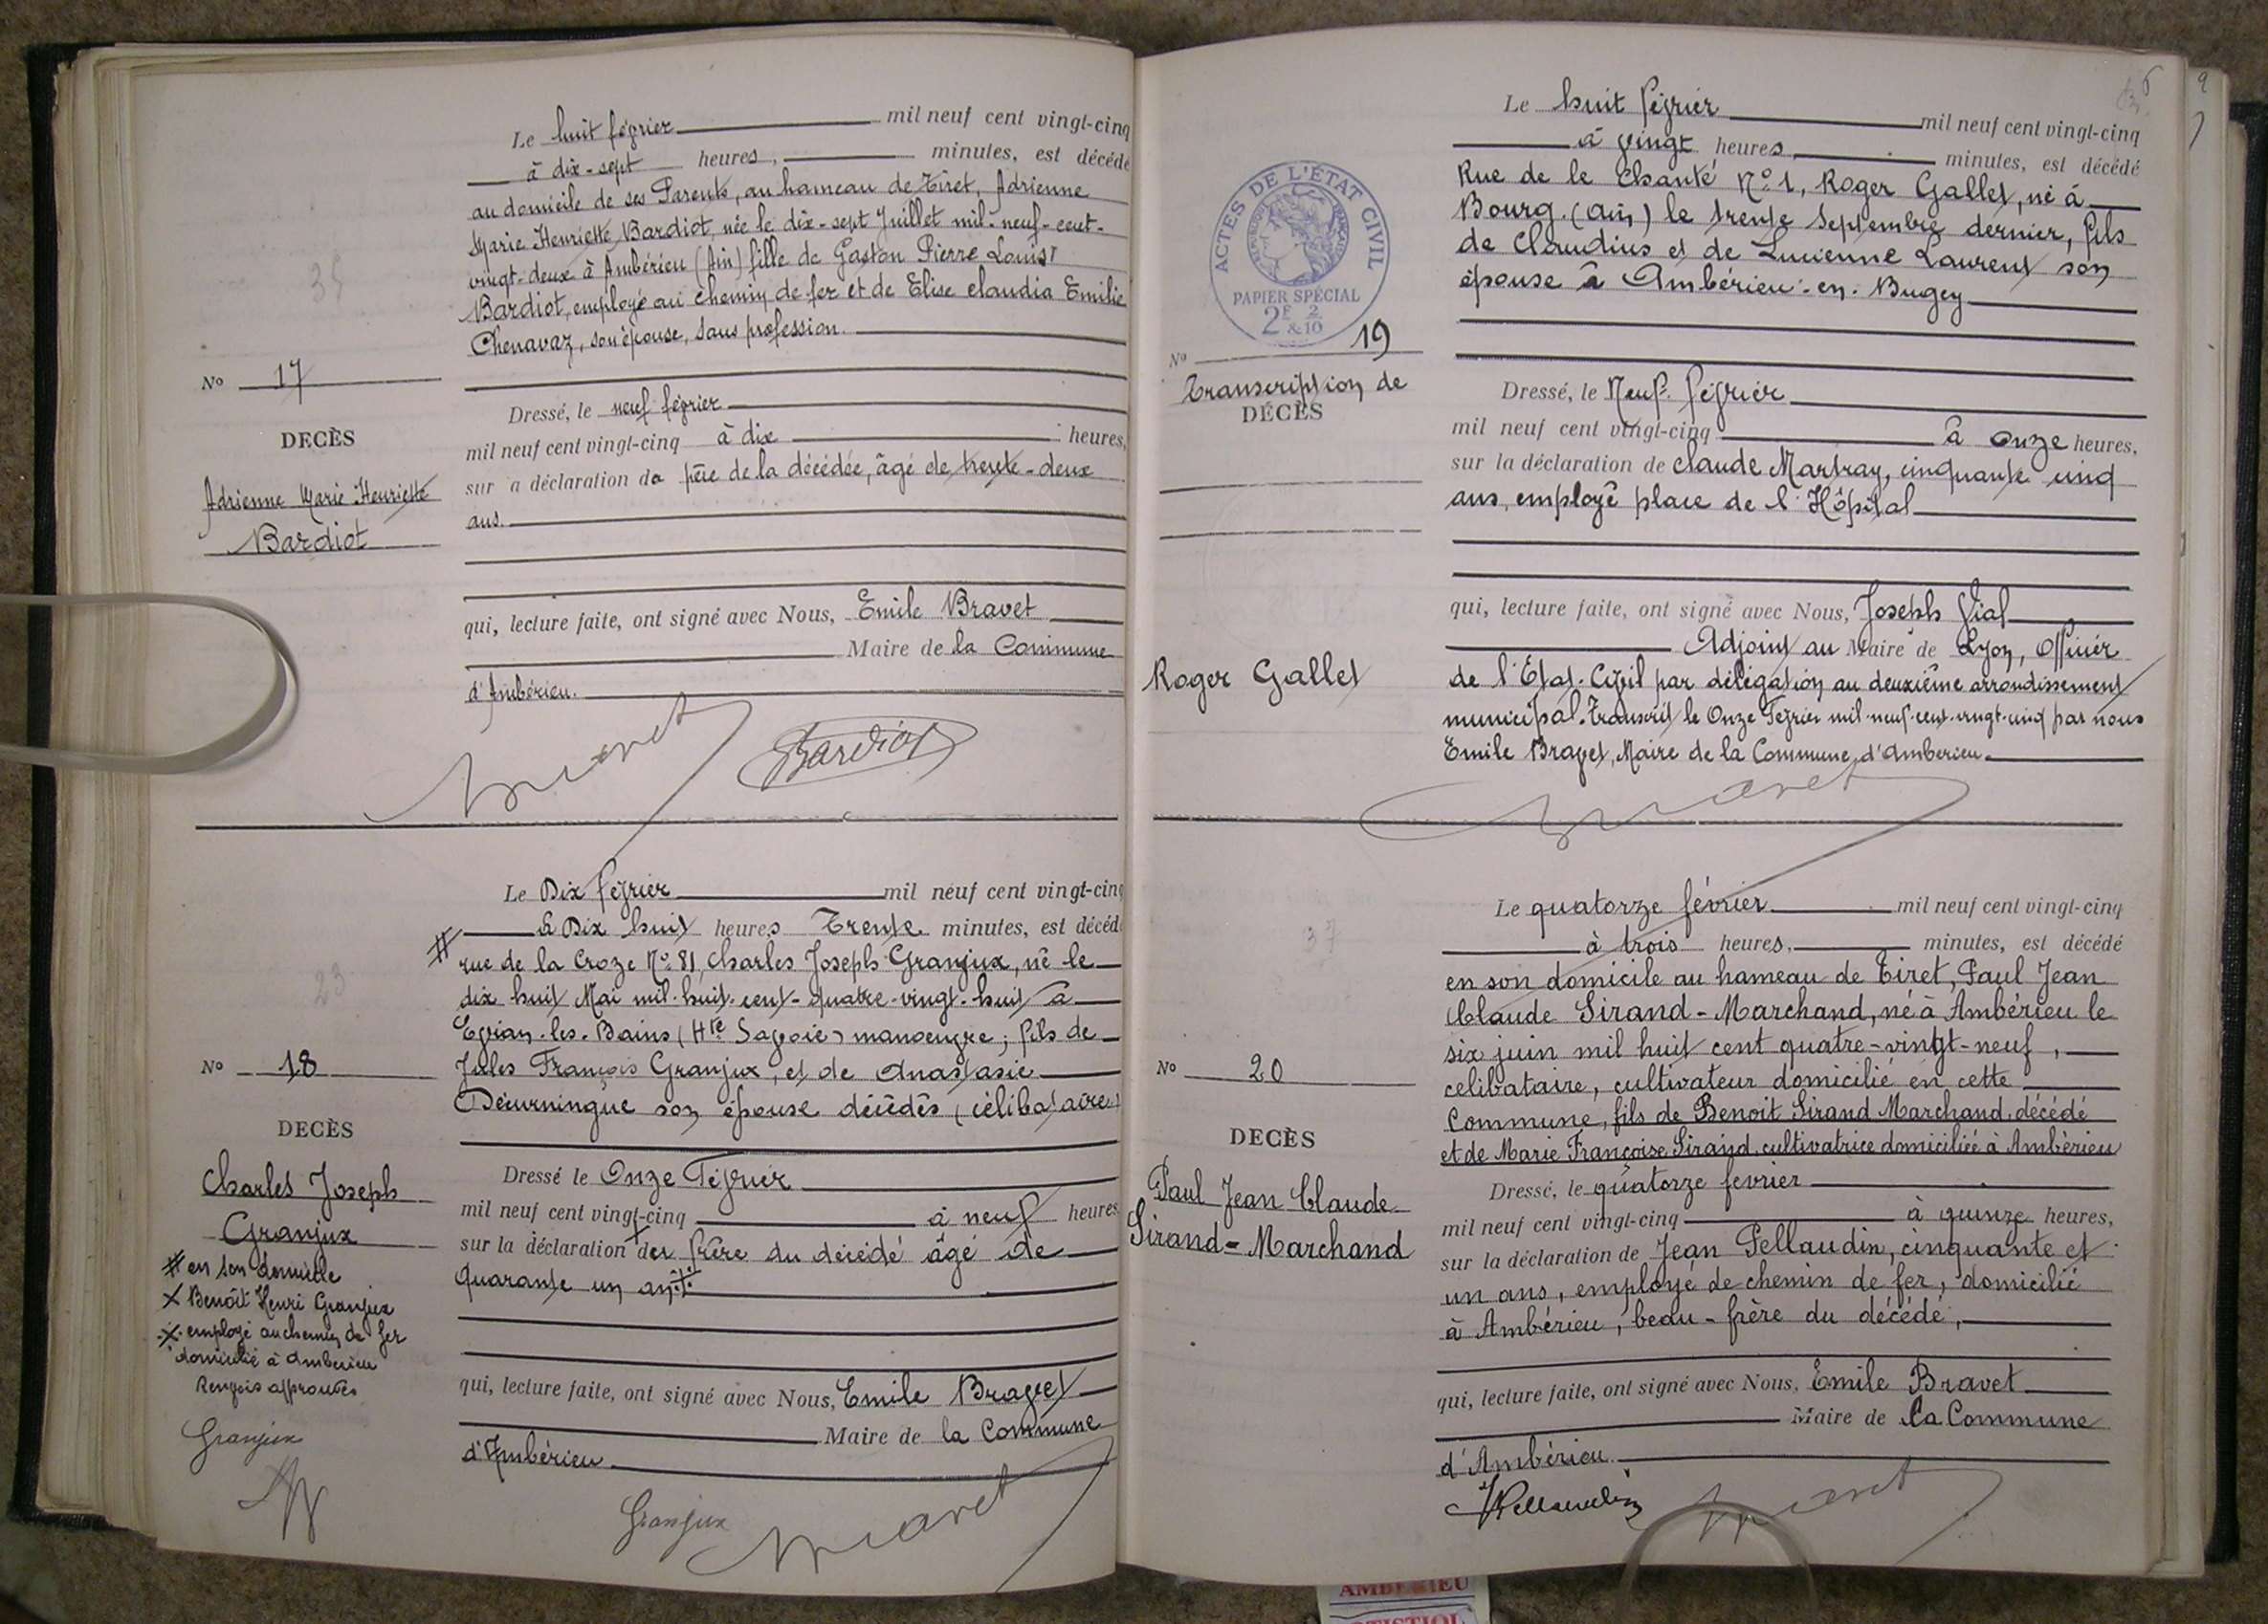 Le huit février mil neuf cent vingt-cinq
à dix-sept heures, minutes, est décédé
au domicile de ses Parents, au hameau de Tiret, Adrienne
Marie Henriette Bardiot, née le dix-sept Juillet mil-neuf-cent-
vingt-deux à Ambérieu (Ain) fille de Gaston Pierre Louis
Bardiot, employé au chemin de fer et de Elise Claudia Emilie
Chenavaz, son épouse, sans profession.
No 17
DECÈS
Adrienne Marie Henriette
Bardiot
Dressé, le neuf février
mil neuf cent vingt-cinq à dix heures,
sur a déclaration da père de la décédée, âgé de trente-deux
ans.
qui, lecture faite, ont signé avec Nous, Emile Bravet
Maire de la Commune
d'Ambérieu.
Bravet Bardiot
Le Dix février mil neuf cent vingt-cinq
à Dix huit heures Trente minutes, est décédé
# rue de la Croze No 81, Charles Joseph Granjux, né le
dix huit Mai mil-huit-cent-quatre-vingt-huit à
Evian-les-Bains (Hte Savoie) manoeuvre; fils de
Jules François Granjux, et de Anastasie
Décurningue son épouse décédés (célibataire)
No 18
DECÈS
Charles Joseph
Granjux
# en son domicile
X Benoît Henri Granjux
X employé au chemin de fer
domicilié à Ambérieu
Renvois approuvés
Granjux
Dressé le Onze Février
mil neuf cent vingt-cinq à neuf heures
sur la déclaration du frère du décédé âgé de
quarante un ans
qui, lecture faite, ont signé avec Nous, Emile Bravet
Maire de la Commune
d'Ambérieu
Granjux Bravet
6
9
Le huit février mil neuf cent vingt-cinq
à vingt heures, minutes, est décédé
Rue de le Chanté No 1, Roger Gallet, né à
Bourg. (Ain) le trente septembre dernier, fils
de Claudius et de Lucienne Laurent son
épouse à Ambérieu-en-Bugey
ACTES DE L'ÉTAT CIVIL
PAPIER SPÉCIAL
2F 2/10
No 19
Transcription de
DÉCÈS
Roger Gallet
Dressé, le Neuf février
mil neuf cent vingt-cinq à onze heures,
sur la déclaration de Claude Martray, cinquante cinq
ans, employé place de l'Hôpital
qui, lecture faite, ont signé avec Nous, Joseph Vial
Adjoint au Maire de Lyon, Officier
de l'Etat-Civil par délégation au deuxième arrondissement
municipal. Transcrit le Onze Février mil-neuf-cent-vingt-cinq par nous
Emile Bravet, Maire de la Commune d'Amberieu
Bravet
Le quatorze février mil neuf cent vingt-cinq
à trois heures, minutes, est décédé
en son domicile au hameau de Tiret, Paul Jean
Claude Sirand-Marchand, né à Ambérieu le
six juin mil huit cent quatre-vingt-neuf,
celibataire, cultivateur domicilié en cette
Commune, fils de Benoit Sirand Marchand décédé
et de Marie Françoise Sirand, cultivatrice domiciliée à Ambérieu
No 20
DECÈS
Paul Jean Claude
Sirand-Marchand
Dressé, le quatorze fevrier
mil neuf cent vingt-cinq à quinze heures,
sur la déclaration de Jean Pellaudin, cinquante et
un ans, employé de chemin de fer, domicilié
à Ambérieu, beau-frère du décédé,
qui, lecture faite, ont signé avec Nous, Emile Bravet
Maire de la Commune
d'Ambérieu
JPellaudin Bravet
AMBERIEU